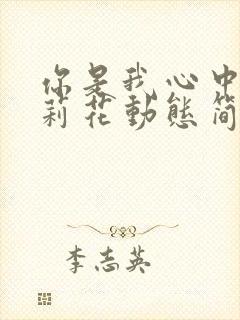 你是我心中
莉花動態簡
李志英